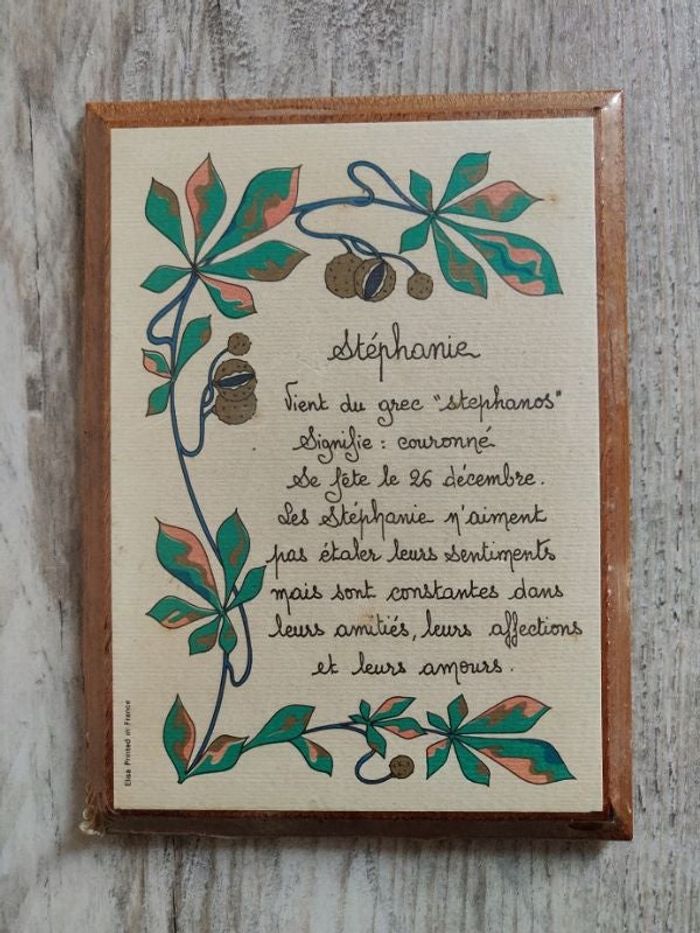 Stéphanie
Vient du grec "stephanos"
Signifie : couronné
Se fête le 26 décembre.
Les Stéphanie n'aiment
pas étaler leurs sentiments
mais sont constantes dans
leurs amitiés, leurs affections
et leurs amours.
Elisa Printed in France